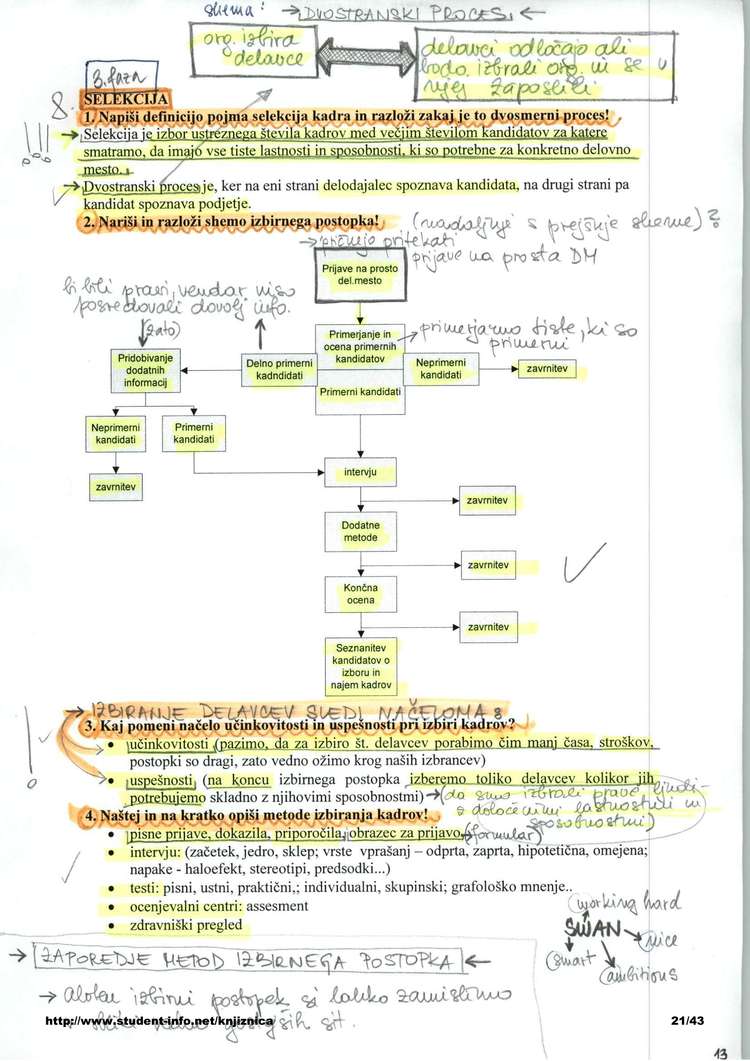 shema: → DVOSTRANSKI PROCES: ←
org. izbira
delavce
delavci odločajo ali
bodo izbrali org. in se v
njej zaposlili
3. faza
8.
SELEKCIJA
1. Napiši definicijo pojma selekcija kadra in razloži zakaj je to dvosmerni proces!
!!! → Selekcija je izbor ustreznega števila kadrov med večjim številom kandidatov za katere
smatramo, da imajo vse tiste lastnosti in sposobnosti, ki so potrebne za konkretno delovno
mesto.
→ Dvostranski proces je, ker na eni strani delodajalec spoznava kandidata, na drugi strani pa
kandidat spoznava podjetje.
2. Nariši in razloži shemo izbirnega postopka!
(nadaljnji s prejšnje sheme)?
→ pričnejo pritekati
prijave na prosta DM
Prijave na prosto
del.mesto
bi bili pravi, vendar niso
posredovali dovolj info.
(zato)
Primerjanje in
ocena primernih
kandidatov
→ primerjamo tiste, ki so
primerni
Pridobivanje
dodatnih
informacij
Delno primerni
kadndidati
Neprimerni
kandidati
zavrnitev
Primerni kandidati
Neprimerni
kandidati
Primerni
kandidati
zavrnitev
intervju
zavrnitev
Dodatne
metode
zavrnitev
Končna
ocena
zavrnitev
Seznanitev
kandidatov o
izboru in
najem kadrov
→ IZBIRANJE DELAVCEV SLEDI NAČELOMA:
3. Kaj pomeni načelo učinkovitosti in uspešnosti pri izbiri kadrov?
• učinkovitosti (pazimo, da za izbiro št. delavcev porabimo čim manj časa, stroškov,
postopki so dragi, zato vedno ožimo krog naših izbrancev)
• uspešnosti (na koncu izbirnega postopka izberemo toliko delavcev kolikor jih
potrebujemo skladno z njihovimi sposobnostmi) → (da smo izbrali prave ljudi
z določenimi lastnostmi in
sposobnostmi)
4. Naštej in na kratko opiši metode izbiranja kadrov!
• pisne prijave, dokazila, priporočila, obrazec za prijavo, (formular)
• intervju: (začetek, jedro, sklep; vrste vprašanj – odprta, zaprta, hipotetična, omejena;
napake - haloefekt, stereotipi, predsodki...)
• testi: pisni, ustni, praktični,; individualni, skupinski; grafološko mnenje..
• ocenjevalni centri: assesment
• zdravniški pregled
working hard
SWAN
nice
smart
ambitious
→ ZAPOREDJE METOD IZBIRNEGA POSTOPKA ←
→ izbirni postopek si lahko zamislimo
sit.
http://www.student-info.net/knjiznica
21/43
13